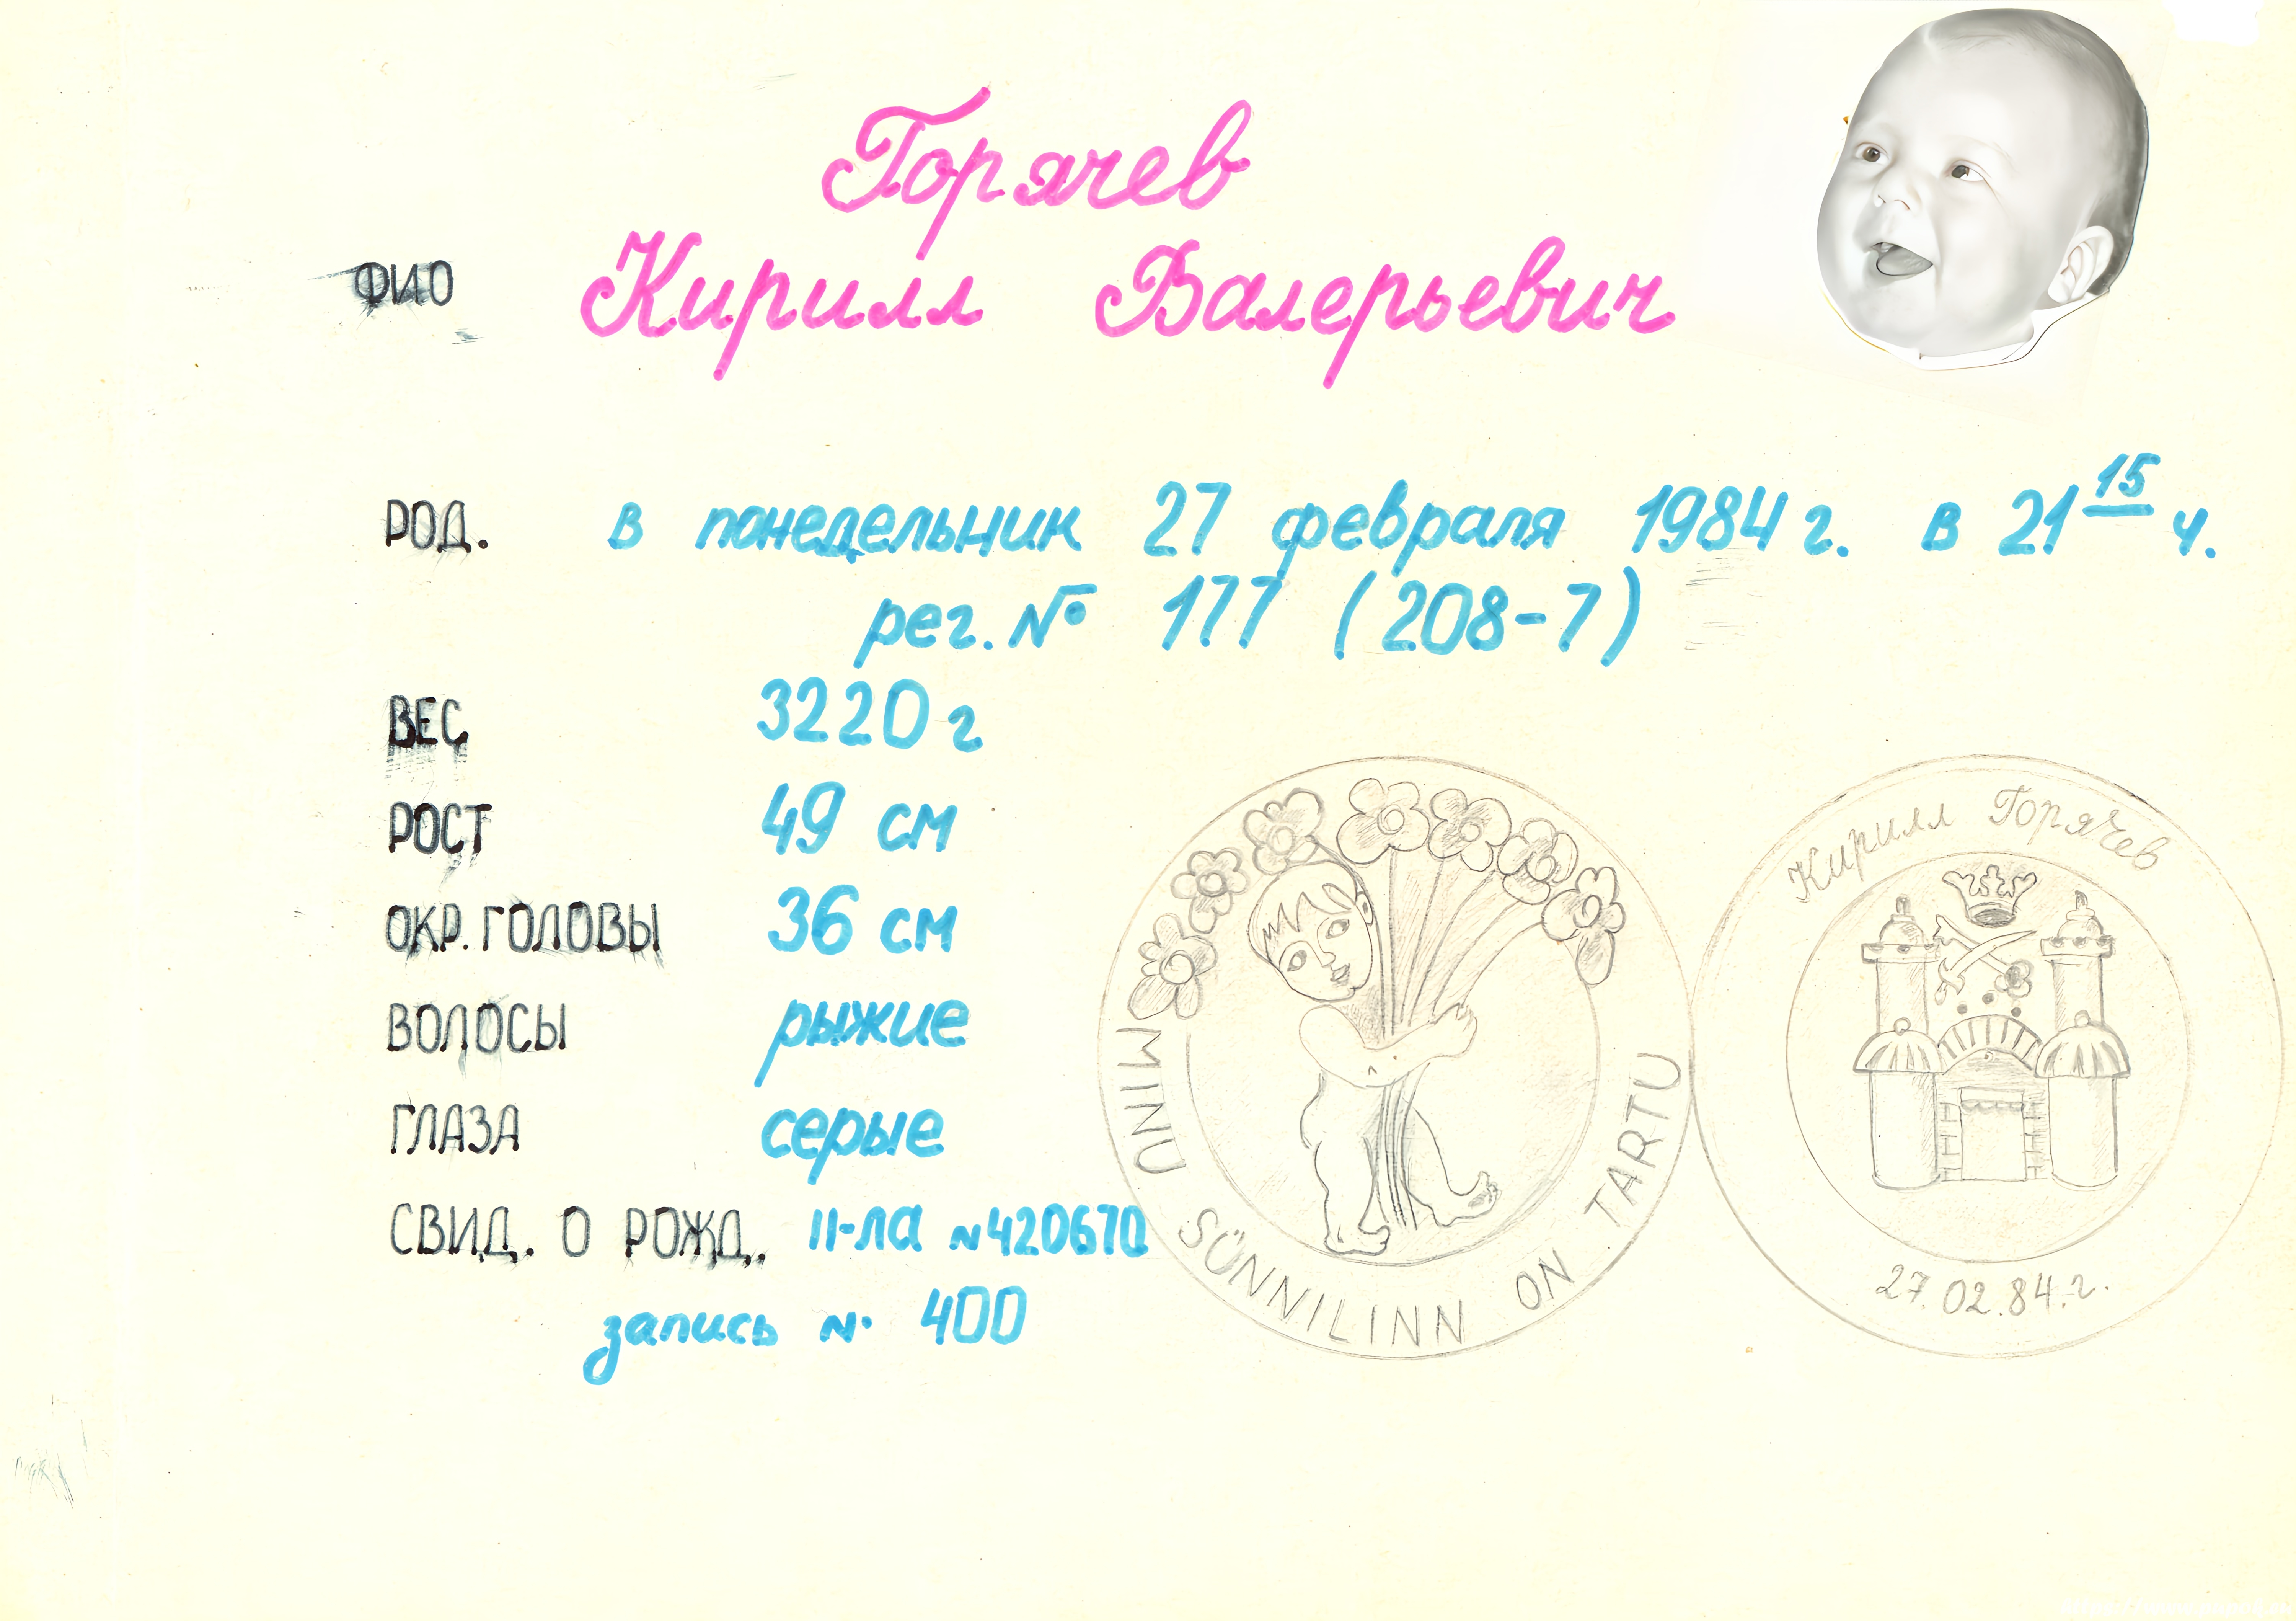 Горячев
ФИО Кирилл Валерьевич
РОД. в понедельник 27 февраля 1984 г. в 21 15 ч.
рег. № 177 (208-7)
ВЕС 3220 г
РОСТ 49 см
ОКР. ГОЛОВЫ 36 см
ВОЛОСЫ рыжие
ГЛАЗА серые
СВИД. О РОЖД. II-ЛА №420670
запись № 400
MINU SÜNNILINN ON TARTU
Кирилл Горячев
27.02.84.г.